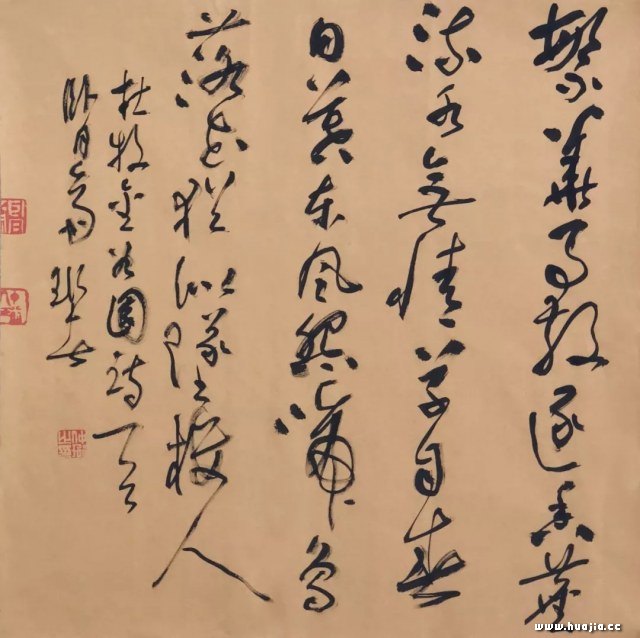 繁華事散逐香塵
流水無情草自春
日暮東風怨啼鳥
落花猶似墜樓人
杜牧金谷園詩一首
臥月齋
www.huajia.cc